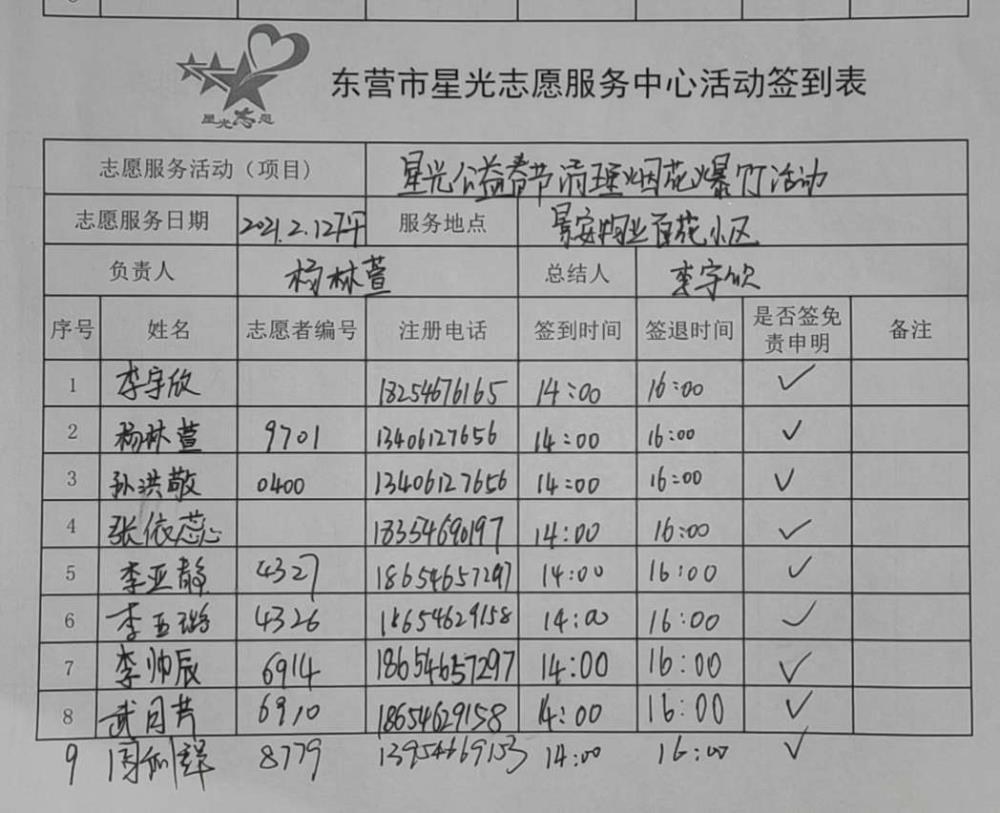 星光志愿
东营市星光志愿服务中心活动签到表
志愿服务活动（项目） 星光公益春节清理烟花爆竹活动
志愿服务日期 2021.2.12下午 服务地点 景安物业百花小区
负责人 杨林萱 总结人 李宇欣
序号 姓名 志愿者编号 注册电话 签到时间 签退时间 是否签免责申明 备注
1 李宇欣 18254676165 14:00 16:00 ✓
2 杨林萱 9701 13406127656 14:00 16:00 ✓
3 孙洪敬 0400 13406127656 14:00 16:00 ✓
4 张依蕊 18354690197 14:00 16:00 ✓
5 李亚静 4327 18654657297 14:00 16:00 ✓
6 李亚璐 4326 18654629158 14:00 16:00 ✓
7 李帅辰 6914 18654657297 14:00 16:00 ✓
8 武月芹 6910 18654629158 14:00 16:00 ✓
9 8779 13954669153 14:00 16:00 ✓